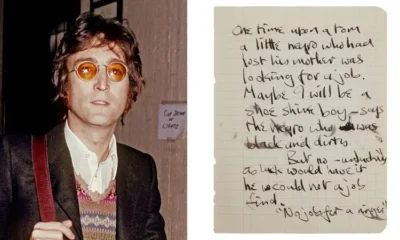 One time upon a tom
a little negro who had
lost his mother was
looking for a job.
Maybe I will be a
shoe shine boy - says
the negro who was
black and dirty.
But no - 
as luck would have it
he could not a job
find.
"No jobs for a